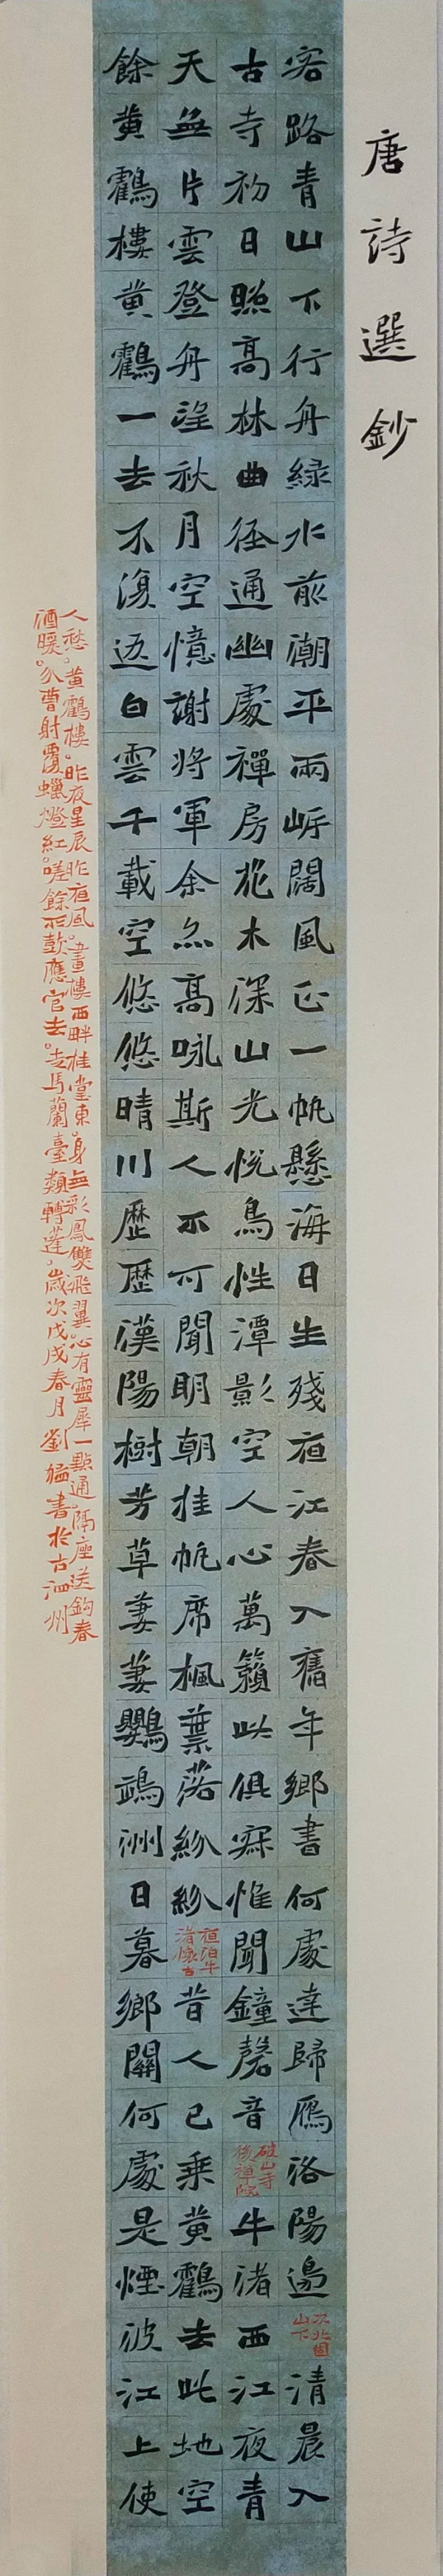 唐詩選鈔
客路青山下行舟緑水前潮平兩岸闊風正一帆懸海日生殘夜江春入舊年鄉書何處達歸雁洛陽邊
次北固山下
清晨入
古寺初日照高林曲徑通幽處禪房花木深山光悅鳥性潭影空人心萬籟此俱寂惟聞鐘磬音
破山寺後禪院
牛渚西江夜青
天無片雲登舟望秋月空憶謝將軍余亦高咏斯人不可聞明朝挂帆席楓葉落紛紛
夜泊牛渚懷古
昔人已乘黄鶴去此地空
餘黄鶴樓黄鶴一去不復返白雲千載空悠悠晴川歷歷漢陽樹芳草萋萋鸚鵡洲日暮鄉關何處是煙波江上使
人愁。黄鶴樓。昨夜星辰昨夜風。畫樓西畔桂堂東。身無彩鳳雙飛翼。心有靈犀一點通。隔座送鈎春
酒暖。分曹射覆蠟燈紅。嗟餘聽鼓應官去。走馬蘭臺類轉蓬。歲次戊戌春月劉猛書於古泗州